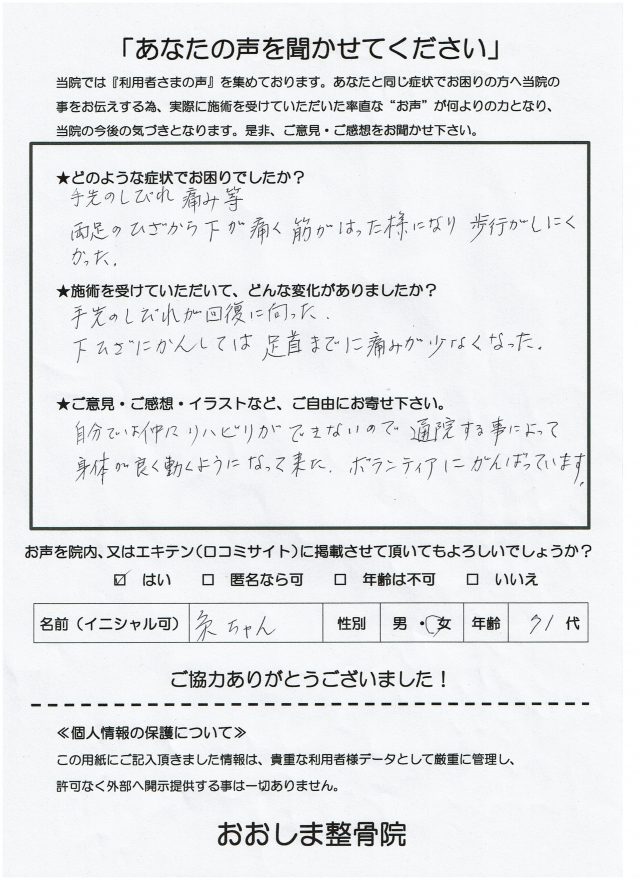 「あなたの声を聞かせてください」
当院では『利用者さまの声』を集めております。あなたと同じ症状でお困りの方へ当院の
事をお伝えする為、実際に施術を受けていただいた率直な“お声”が何よりの力となり、
当院の今後の気づきとなります。是非、ご意見・ご感想をお聞かせ下さい。
★どのような症状でお困りでしたか？
手先のしびれ 痛み等
両足のひざから下が痛く 筋がはった様になり 歩行がしにく
かった.
★施術を受けていただいて、どんな変化がありましたか？
手先のしびれが回復に向った.
下ひざにかんしては 足首までに痛みが少なくなった.
★ご意見・ご感想・イラストなど、ご自由にお寄せ下さい。
自分では仲々リハビリができないので 通院する事によって
身体が良く動くようになって来た. ボランティアにがんばっています.
お声を院内、又はエキテン（口コミサイト）に掲載させて頂いてもよろしいでしょうか？
☑ はい □ 匿名なら可 □ 年齢は不可 □ いいえ
名前（イニシャル可） ちゃん 性別 男・女 年齢 71代
ご協力ありがとうございました！
≪個人情報の保護について≫
この用紙にご記入頂きました情報は、貴重な利用者様データとして厳重に管理し、
許可なく外部へ開示提供する事は一切ありません。
おおしま整骨院